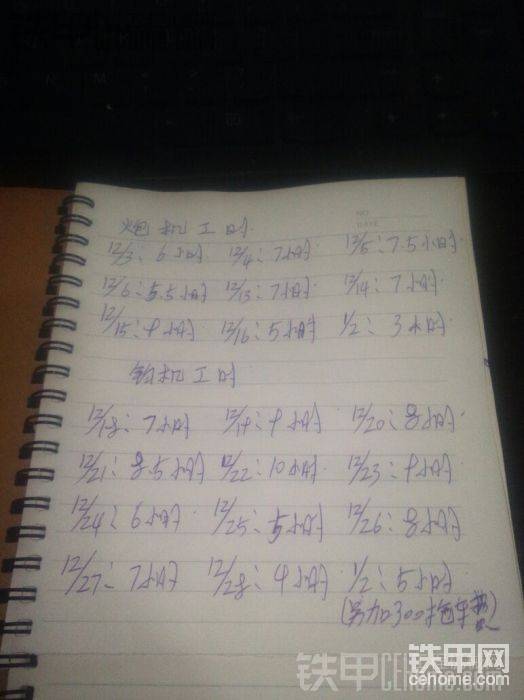 NO
DATE
炮机工时
12/3: 6小时 12/4: 7小时 12/5: 7.5小时
12/6: 5.5小时 12/13: 7小时 12/14: 7小时
12/15: 9小时 12/16: 5小时 1/2: 3小时
钩机工时
12/18: 7小时 12/19: 9小时 12/20: 8小时
12/21: 8.5小时 12/22: 10小时 12/23: 9小时
12/24: 6小时 12/25: 5小时 12/26: 8小时
12/27: 7小时 12/28: 4小时 1/2: 5小时
(另加300拖车费)
铁甲网
cehome.com